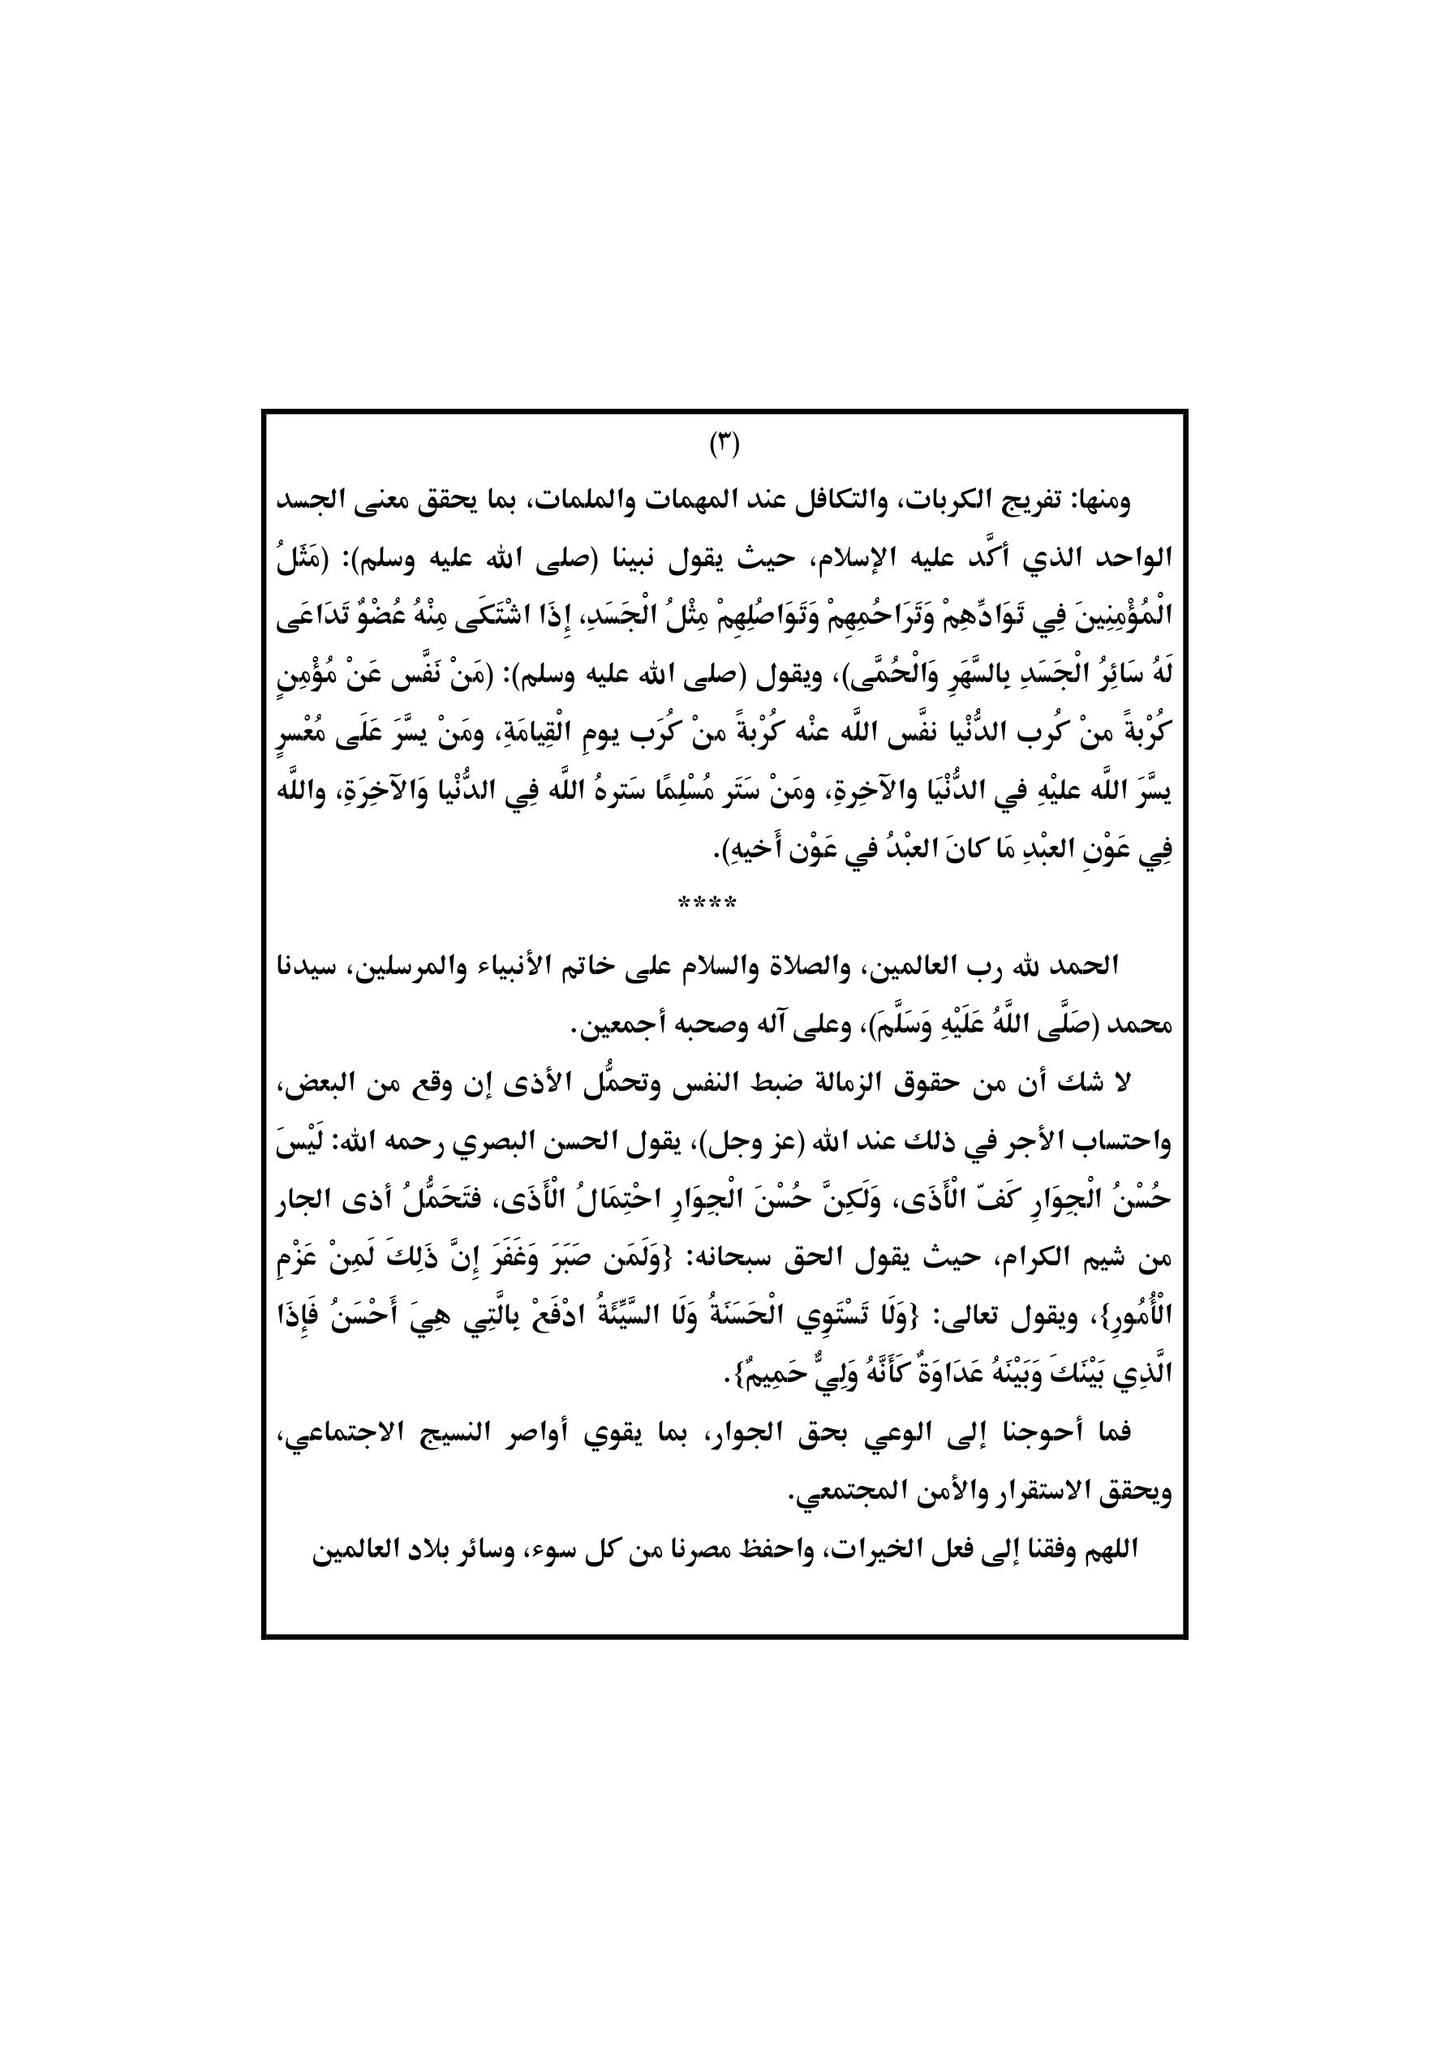 (٣)
ومنها: تفريج الكربات، والتكافل عند المهمات والملمات، بما يحقق معنى الجسد
الواحد الذي أكَّد عليه الإسلام، حيث يقول نبينا (صلى الله عليه وسلم): (مَثَلُ
الْمُؤْمِنِينَ فِي تَوَادِّهِمْ وَتَرَاحُمِهِمْ وَتَوَاصُلِهِمْ مِثْلُ الْجَسَدِ، إِذَا اشْتَكَى مِنْهُ عُضْوٌ تَدَاعَى
لَهُ سَائِرُ الْجَسَدِ بِالسَّهَرِ وَالْحُمَّى)، ويقول (صلى الله عليه وسلم): (مَنْ نَفَّس عَنْ مُؤْمِنٍ
كُرْبةً منْ كُرب الدُّنْيا نفَّس اللَّه عنْه كُرْبةً منْ كُرَب يومِ الْقِيامَةِ، ومَنْ يسَّرَ عَلَى مُعْسرٍ
يسَّرَ اللَّه عليْهِ في الدُّنْيَا والآخِرةِ، ومَنْ سَتَر مُسْلِمًا سَترهُ اللَّه فِي الدُّنْيا وَالآخِرَةِ، واللَّه
فِي عَوْنِ العبْدِ مَا كانَ العبْدُ في عَوْن أَخيهِ).
****
الحمد لله رب العالمين، والصلاة والسلام على خاتم الأنبياء والمرسلين، سيدنا
محمد (صَلَّى اللَّهُ عَلَيْهِ وَسَلَّمَ)، وعلى آله وصحبه أجمعين.
لا شك أن من حقوق الزمالة ضبط النفس وتحمُّل الأذى إن وقع من البعض،
واحتساب الأجر في ذلك عند الله (عز وجل)، يقول الحسن البصري رحمه الله: لَيْسَ
حُسْنُ الْجِوَارِ كَفّ الْأَذَى، وَلَكِنَّ حُسْنَ الْجِوَارِ احْتِمَالُ الْأَذَى، فتَحَمُّلُ أذى الجار
من شيم الكرام، حيث يقول الحق سبحانه: {وَلَمَن صَبَرَ وَغَفَرَ إِنَّ ذَلِكَ لَمِنْ عَزْمِ
الْأُمُورِ}، ويقول تعالى: {وَلَا تَسْتَوِي الْحَسَنَةُ وَلَا السَّيِّئَةُ ادْفَعْ بِالَّتِي هِيَ أَحْسَنُ فَإِذَا
الَّذِي بَيْنَكَ وَبَيْنَهُ عَدَاوَةٌ كَأَنَّهُ وَلِيٌّ حَمِيمٌ}.
فما أحوجنا إلى الوعي بحق الجوار، بما يقوي أواصر النسيج الاجتماعي،
ويحقق الاستقرار والأمن المجتمعي.
اللهم وفقنا إلى فعل الخيرات، واحفظ مصرنا من كل سوء، وسائر بلاد العالمين